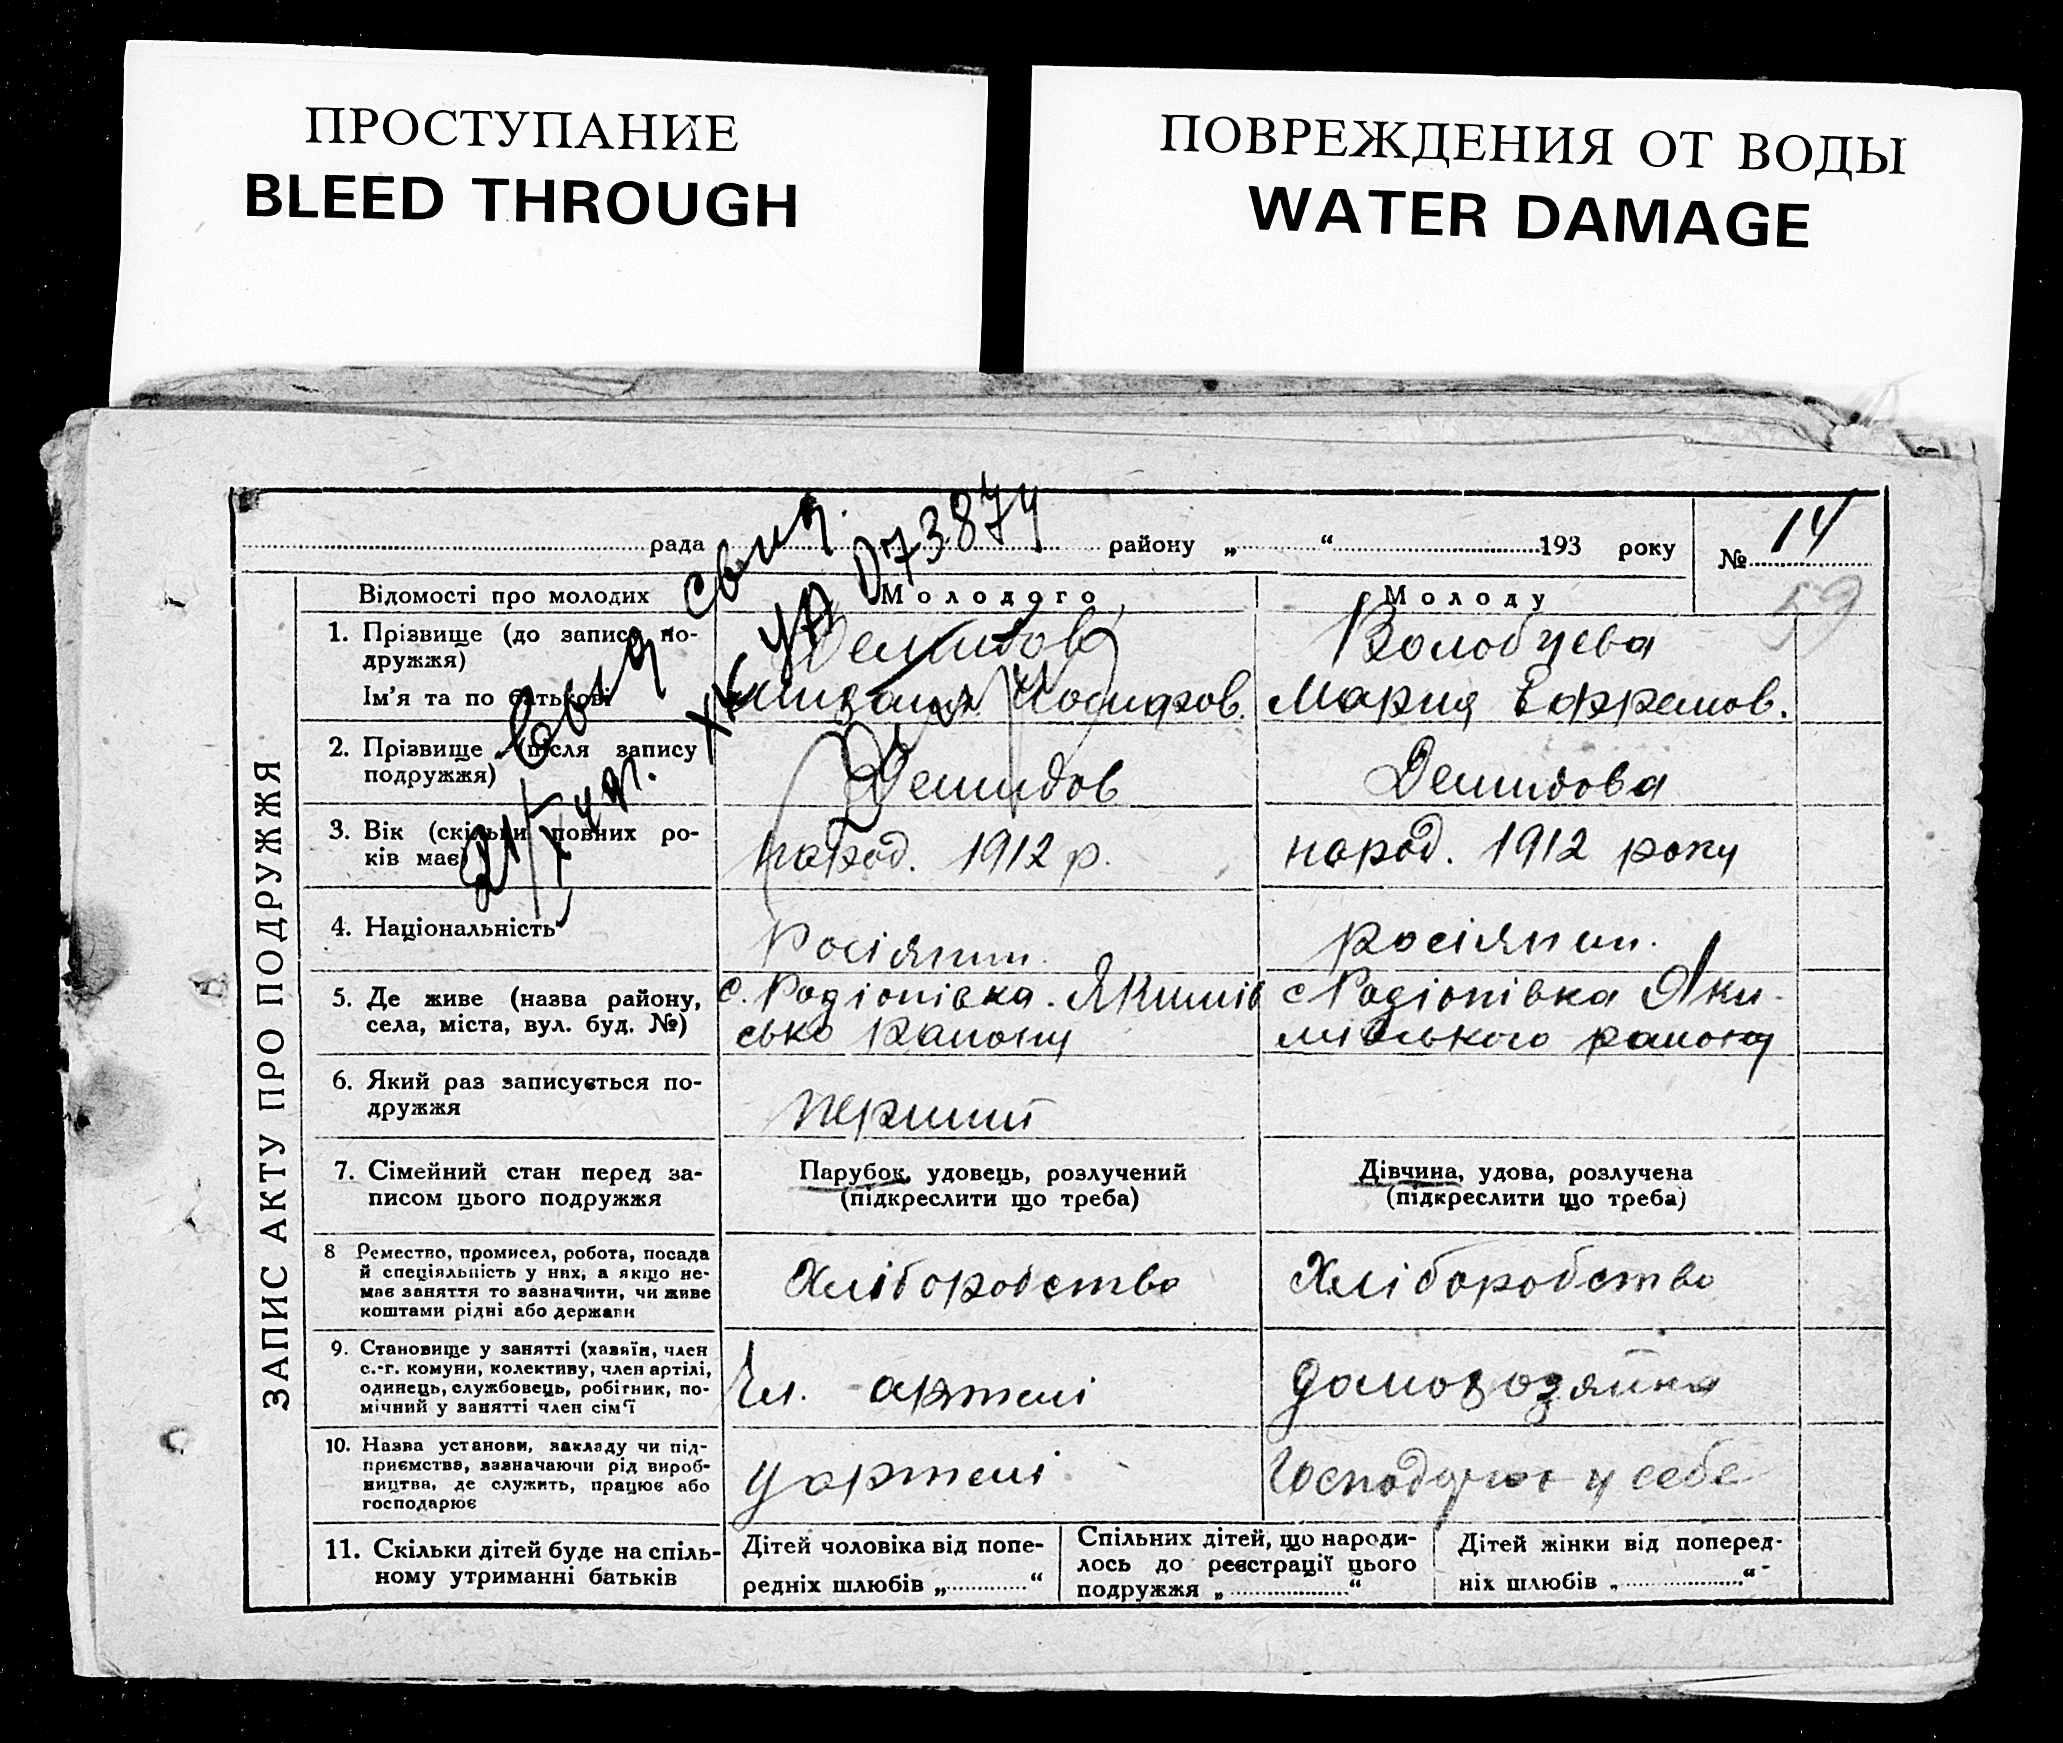 ПРОСТУПАНИЕ
BLEED THROUGH
ПОВРЕЖДЕНИЯ ОТ ВОДЫ
WATER DAMAGE
рада району „ “ 193 року № 14
59
ЗАПИС АКТУ ПРО ПОДРУЖЖЯ
Відомості про молодих
Молодого
Молоду
1. Прізвище (до запису по-
дружжя)
Ім'я та по батькові
Демидов
Волобуева
Мария Ефремов.
2. Прізвище (після запису
подружжя)
Демидов
Демидова
3. Вік (скільки повних ро-
ків має)
народ. 1912 р.
народ. 1912 року
4. Національність
Росіянин
росіянин.
5. Де живе (назва району,
села, міста, вул. буд. №)
с. Родіонівка. Якимів
сько району
с Родіонівка Яки-
мівського району
6. Який раз записується по-
дружжя
перший
7. Сімейний стан перед за-
писом цього подружжя
Парубок, удовець, розлучений
(підкреслити що треба)
Дівчина, удова, розлучена
(підкреслити що треба)
8 Ремество, промисел, робота, посада
й спеціяльність у них, а якщо не-
має заняття то зазначити, чи живе
коштами рідні або держави
Хліборобство
Хліборобство
9. Становище у занятті (хазяїн, член
с.-г. комуни, колективу, член артілі,
одинець, службовець, робітник, по-
мічний у занятті член сім'ї
Чл. артелі
домохозяйка
10. Назва установи, закладу чи під-
приємства, зазначаючи рід вироб-
ництва, де служить, працює або
господарює
у артелі
у себе
11. Скільки дітей буде на спіль-
ному утриманні батьків
Дітей чоловіка від попе-
редніх шлюбів „ “
Спільних дітей, що народи-
лось до реєстрації цього
подружжя „ “
Дітей жінки від поперед-
ніх шлюбів „ “
свид.
073874